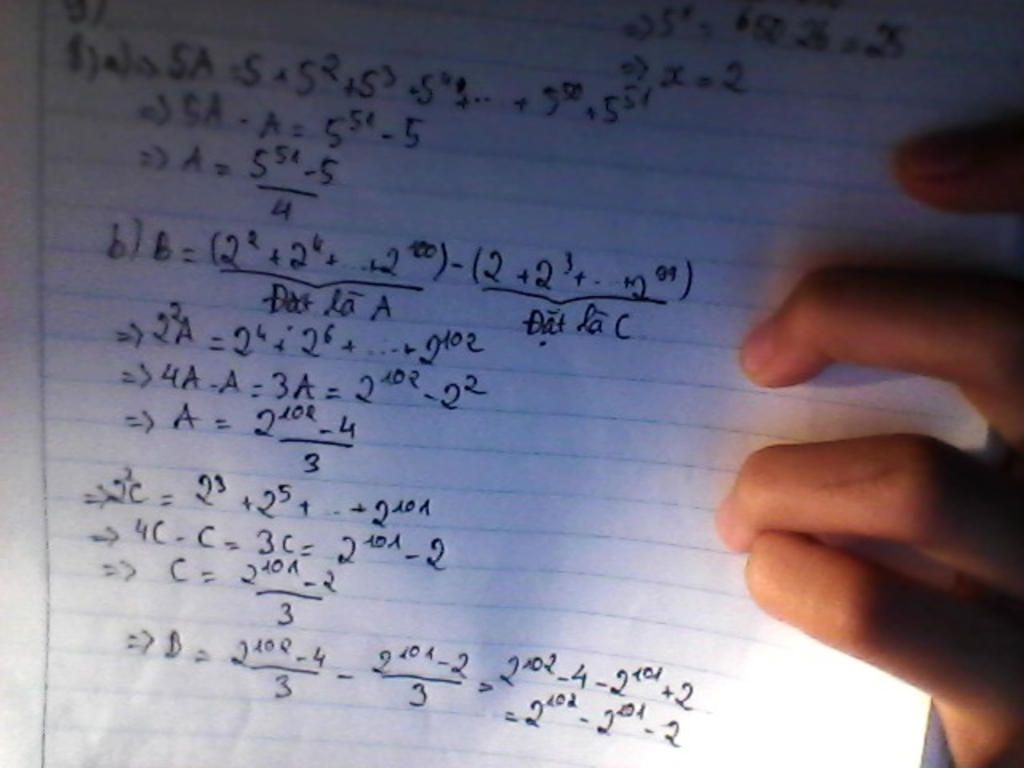 => x = 2
a) => 5A = 5 + 5² + 5³ + 5⁴ + ... + 5⁵⁰ + 5⁵¹
=> 5A - A = 5⁵¹ - 5
=> A = (5⁵¹ - 5)/4
b) B = (2² + 2⁴ + ... + 2¹⁰⁰) - (2 + 2³ + ... + 2⁹⁹)
Đặt là A Đặt là C
=> 2²A = 2⁴ + 2⁶ + ... + 2¹⁰²
=> 4A - A = 3A = 2¹⁰² - 2²
=> A = (2¹⁰² - 4)/3
=> 2²C = 2³ + 2⁵ + ... + 2¹⁰¹
=> 4C - C = 3C = 2¹⁰¹ - 2
=> C = (2¹⁰¹ - 2)/3
=> B = (2¹⁰² - 4)/3 - (2¹⁰¹ - 2)/3 = 2¹⁰² - 4 - 2¹⁰¹ + 2
= 2¹⁰² - 2¹⁰¹ - 2